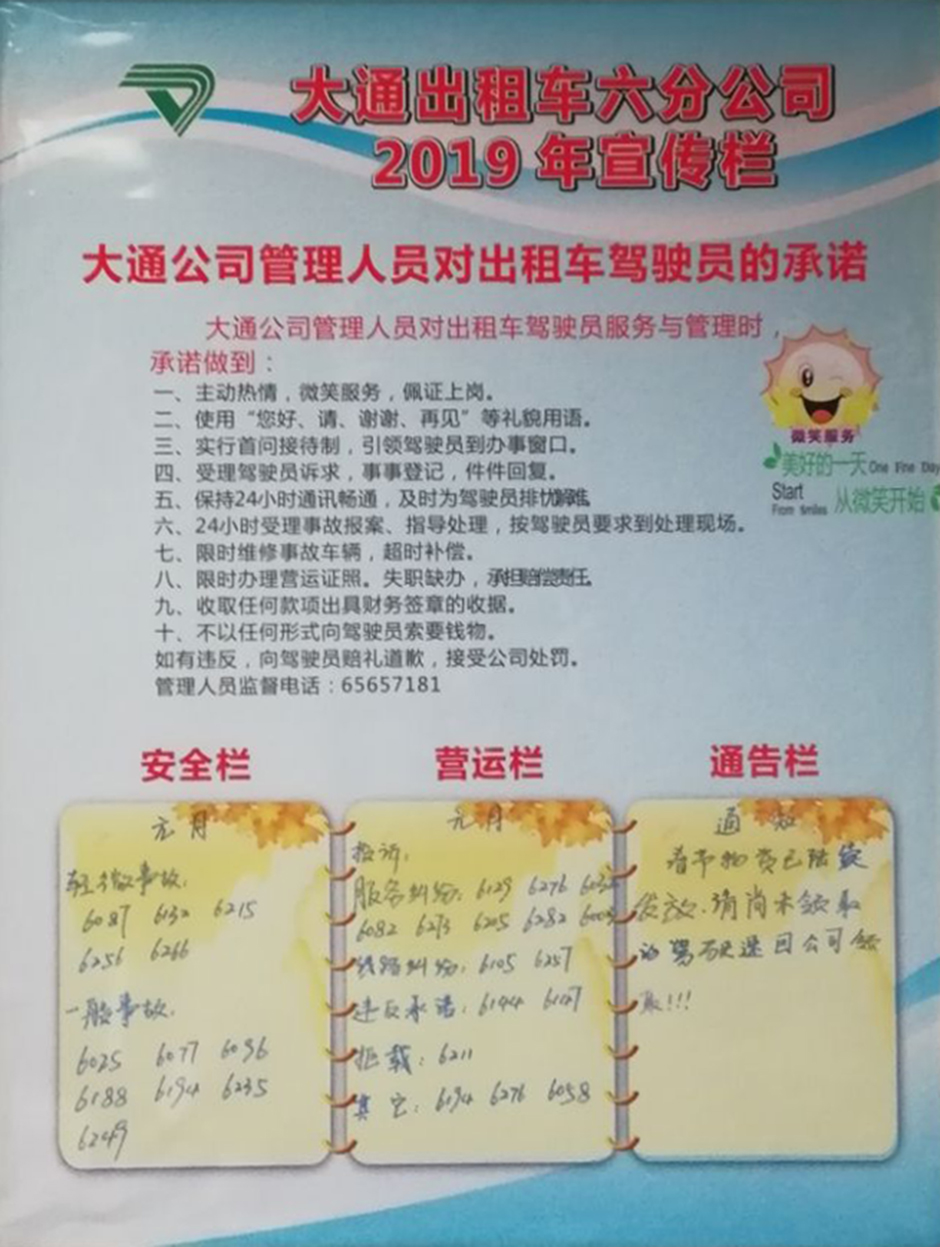 大通出租车六分公司
2019 年宣传栏
大通公司管理人员对出租车驾驶员的承诺
大通公司管理人员对出租车驾驶员服务与管理时，
承诺做到：
一、主动热情，微笑服务，佩证上岗。
二、使用“您好、请、谢谢、再见”等礼貌用语。
三、实行首问接待制，引领驾驶员到办事窗口。
四、受理驾驶员诉求，事事登记，件件回复。
五、保持24小时通讯畅通，及时为驾驶员排忧解难。
六、24小时受理事故报案、指导处理，按驾驶员要求到处理现场。
七、限时维修事故车辆，超时补偿。
八、限时办理营运证照。失职缺办，承担赔偿责任。
九、收取任何款项出具财务签章的收据。
十、不以任何形式向驾驶员索要钱物。
如有违反，向驾驶员赔礼道歉，接受公司处罚。
管理人员监督电话：65657181
微笑服务
美好的一天 One Fine Day
Start
From smiles 从微笑开始
安全栏
元月
轻微事故：
6087 6132 6215
6256 6266
一般事故：
6025 6077 6096
6188 6194 6235
6249
营运栏
元月
投诉：
服务纠纷：6129 6276
6082 6273 6205 6282
线路纠纷：6105 6257
违反承诺：6144
拒载：6211
其它：6194 6276 6058
通告栏
通知
春节物资已陆续
发放、请尚未领取
的驾驶员速回公司领
取!!!